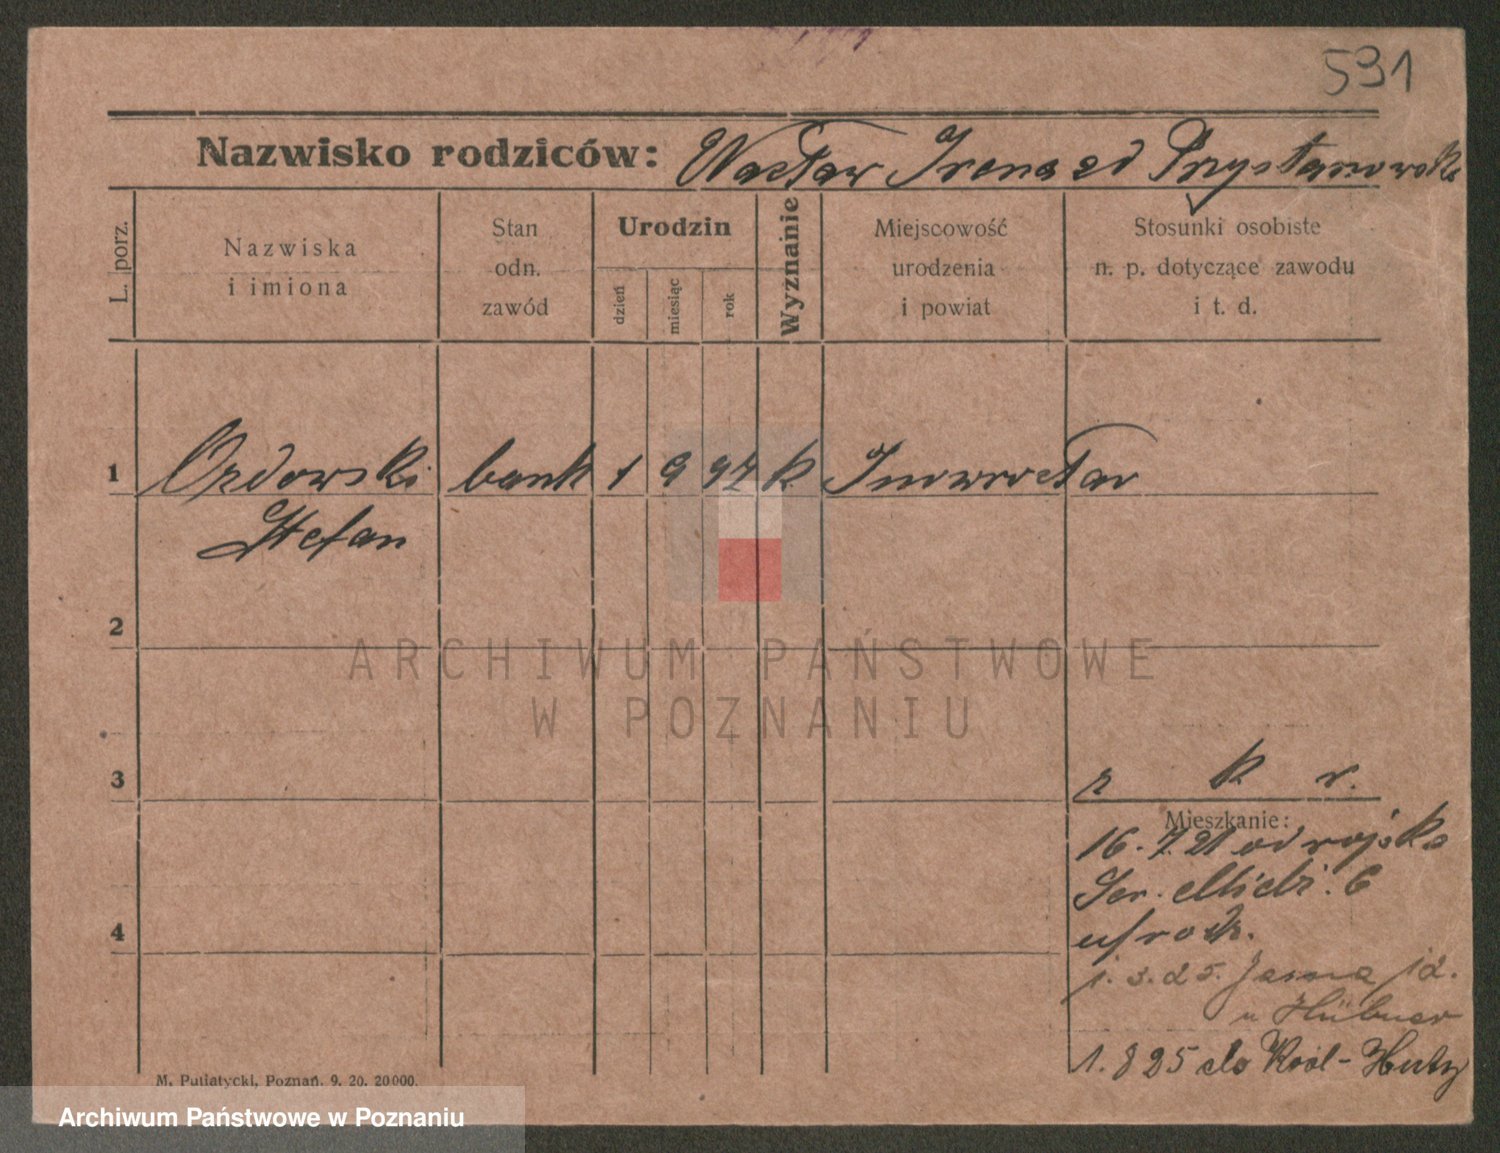 531
Nazwisko rodziców: Wacław Irena zd Przystanowska
L. porz.
Nazwiska
i imiona
Stan
odn.
zawód
Urodzin
dzień
miesiąc
rok
Wyznanie
Miejscowość
urodzenia
i powiat
Stosunki osobiste
n. p. dotyczące zawodu
i t. d.
1 Ordowski bank 1 9 97 k Inowrocław
Stefan
2
3
r k r.
Mieszkanie:
16. 7. 21 od wojska
6
4
1. 3. 25. Jasna 12.
u Hübner
1. 8 25 do Król-Huty
M. Putiatycki, Poznań. 9. 20. 20000.
ARCHIWUM PAŃSTWOWE
W POZNANIU
Archiwum Państwowe w Poznaniu